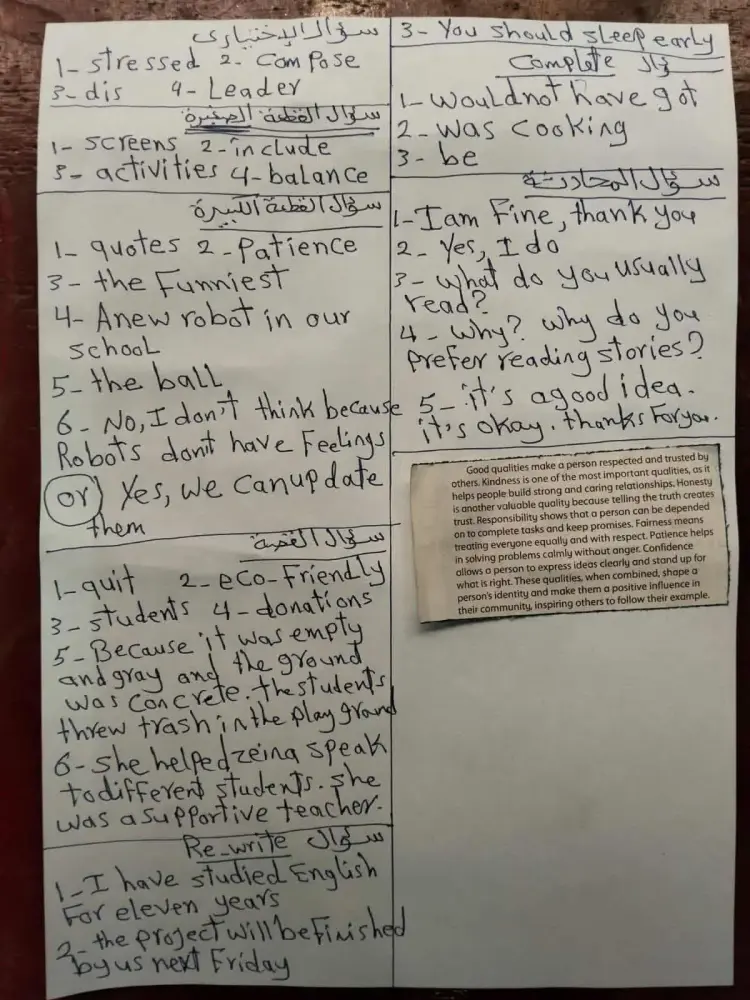 سؤال الإختياري
1- stressed 2- Compose
3- dis 4- Leader
سؤال القطعة الصغيرة
1- screens 2- include
3- activities 4- balance
سؤال القطعة الكبيرة
1- quotes 2- Patience
3- the Funniest
4- A new robot in our
school
5- the ball
6- No, I don't think because
Robots don't have Feelings
(or) Yes, we can update
them
سؤال القصة
1- quit 2- eco-Friendly
3- students 4- donations
5- Because it was empty
and gray and the ground
was concrete. the students
threw trash in the play ground
6- she helped zeina speak
to different students. she
was a supportive teacher.
سؤال Re-write
1- I have studied English
For eleven years
2- the project will be Finished
by us next Friday
3- You should sleep early
سؤال Complete
1- wouldnot have got
2- was cooking
3- be
سؤال المحادثة
1- I am Fine, thank you
2- Yes, I do
3- what do you usually
read?
4- why? why do you
prefer reading stories?
5- it's a good idea.
it's okay. thanks For you.
Good qualities make a person respected and trusted by
others. Kindness is one of the most important qualities, as it
helps people build strong and caring relationships. Honesty
is another valuable quality because telling the truth creates
trust. Responsibility shows that a person can be depended
on to complete tasks and keep promises. Fairness means
treating everyone equally and with respect. Patience helps
in solving problems calmly without anger. Confidence
allows a person to express ideas clearly and stand up for
what is right. These qualities, when combined, shape a
person's identity and make them a positive influence in
their community, inspiring others to follow their example.